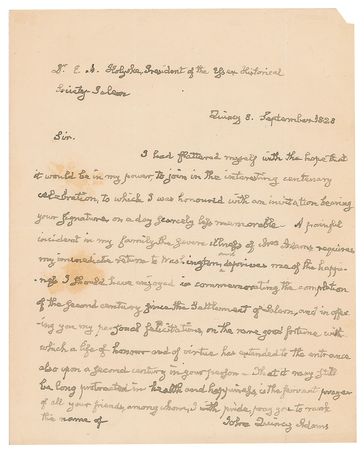 Dr. E. A. Holyoke, President of the Essex Historical
Society Salem
Quincy 8. September 1828
Sir.
I had flattered myself with the hope that
it would be in my power, to join in the interesting centenary
celebration, to which I was honoured with an invitation bearing
your signature, on a day scarcely less memorable. A painful
incident in my family the severe illness of Mrs Adams requires
my immediate return to Washington, deprives me of the happi-
ness I should have enjoyed in commemorating the completion
of the second century since the settlement of Salem, and in offer-
ing you my personal felicitations, on the same good fortune with
which a life of honour and of virtue has extended to the entrance
also upon a second century in your person — That it may still
be long protracted in health and happiness, is the fervent prayer
of all your friends, among whom, I with pride, pray you to rank
the name of John Quincy Adams